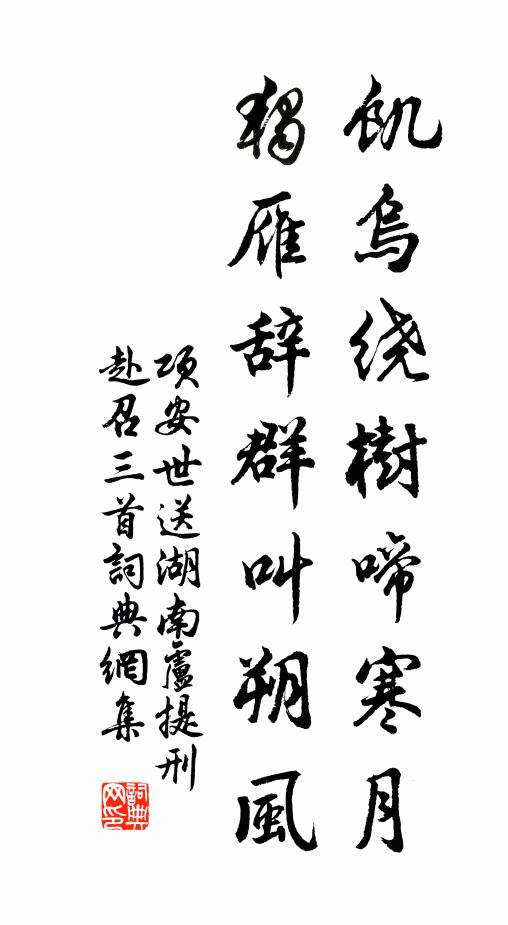 飢烏绕樹啼寒月
獨雁辞群叫朔風
项安世送湖南盧提刑
赴召三首詞典網集
詞典
网印